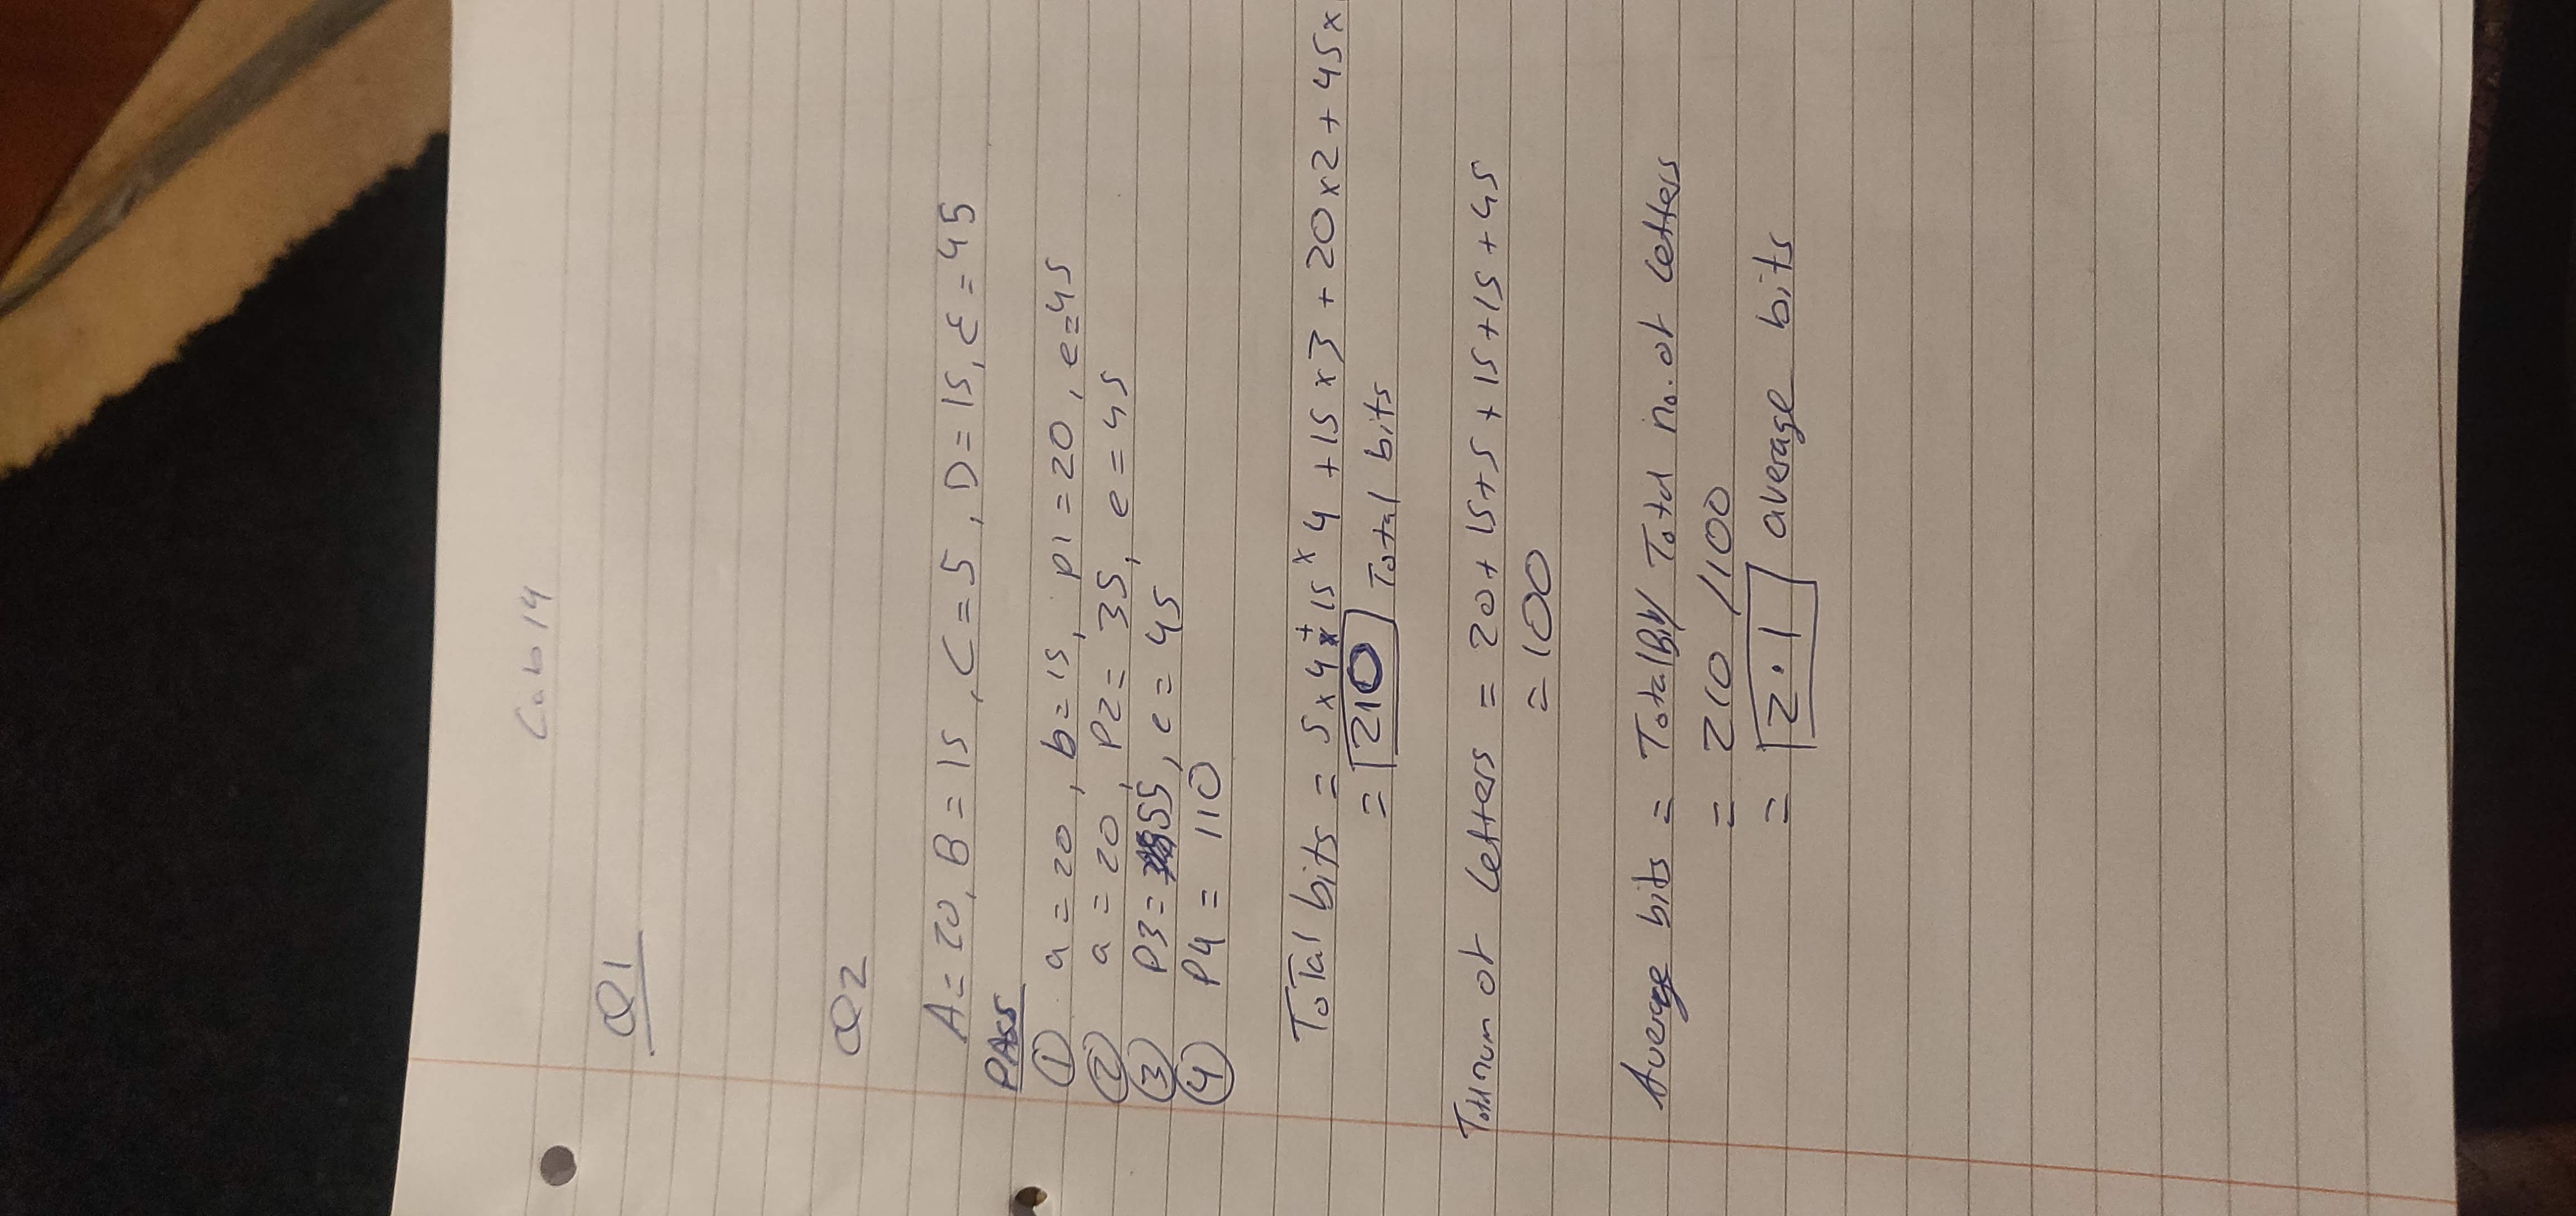 Lab 14
Q1
Q2
A = 20, B = 15, C = 5, D = 15, E = 45
PASS
① a = 20, b = 15, p1 = 20, e = 45
② a = 20, P2 = 35, e = 45
③ P3 = 55, e = 45
④ P4 = 110
Total bits = 5 x 4 + 15 x 4 + 15 x 3 + 20 x 2 + 45 x
= 210 Total bits
Total num of letters = 20 + 15 + 5 + 15 + 15 + 45
= 100
Average bits = Total Bit / Total no. of letters
= 210 / 100
= 2.1 average bits